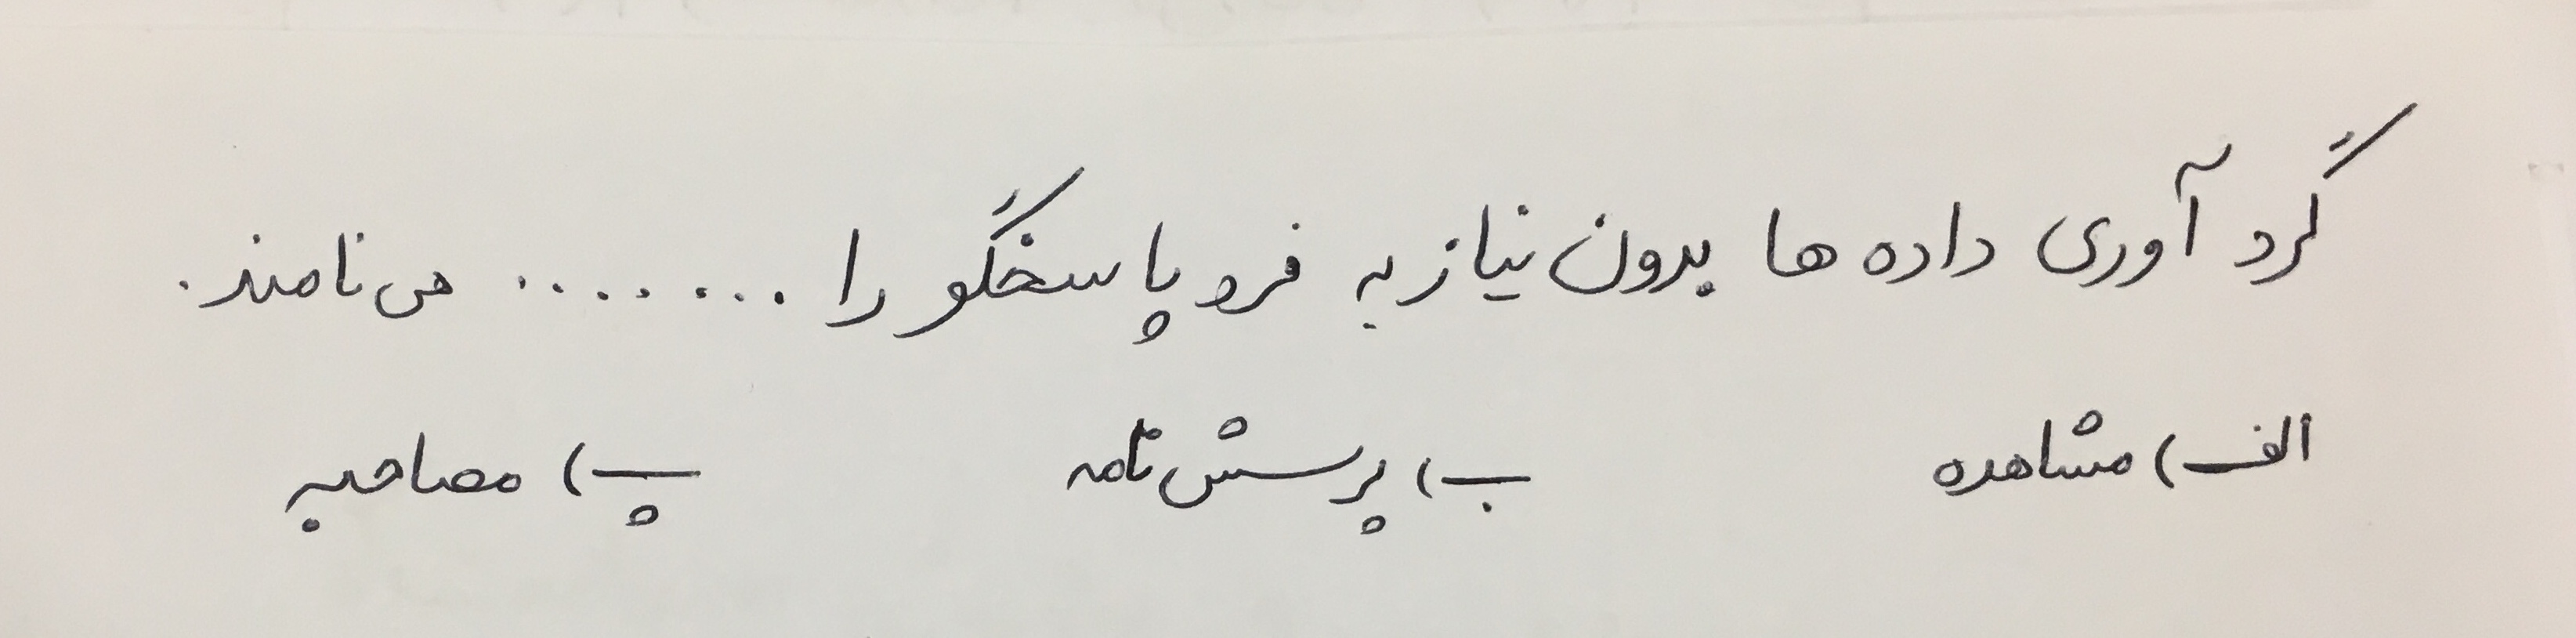 گرد آوری داده ها بدون نیاز به فرد پاسخگو را ........ می نامند.
الف) مشاهده ب) پرسش نامه پ) مصاحبه